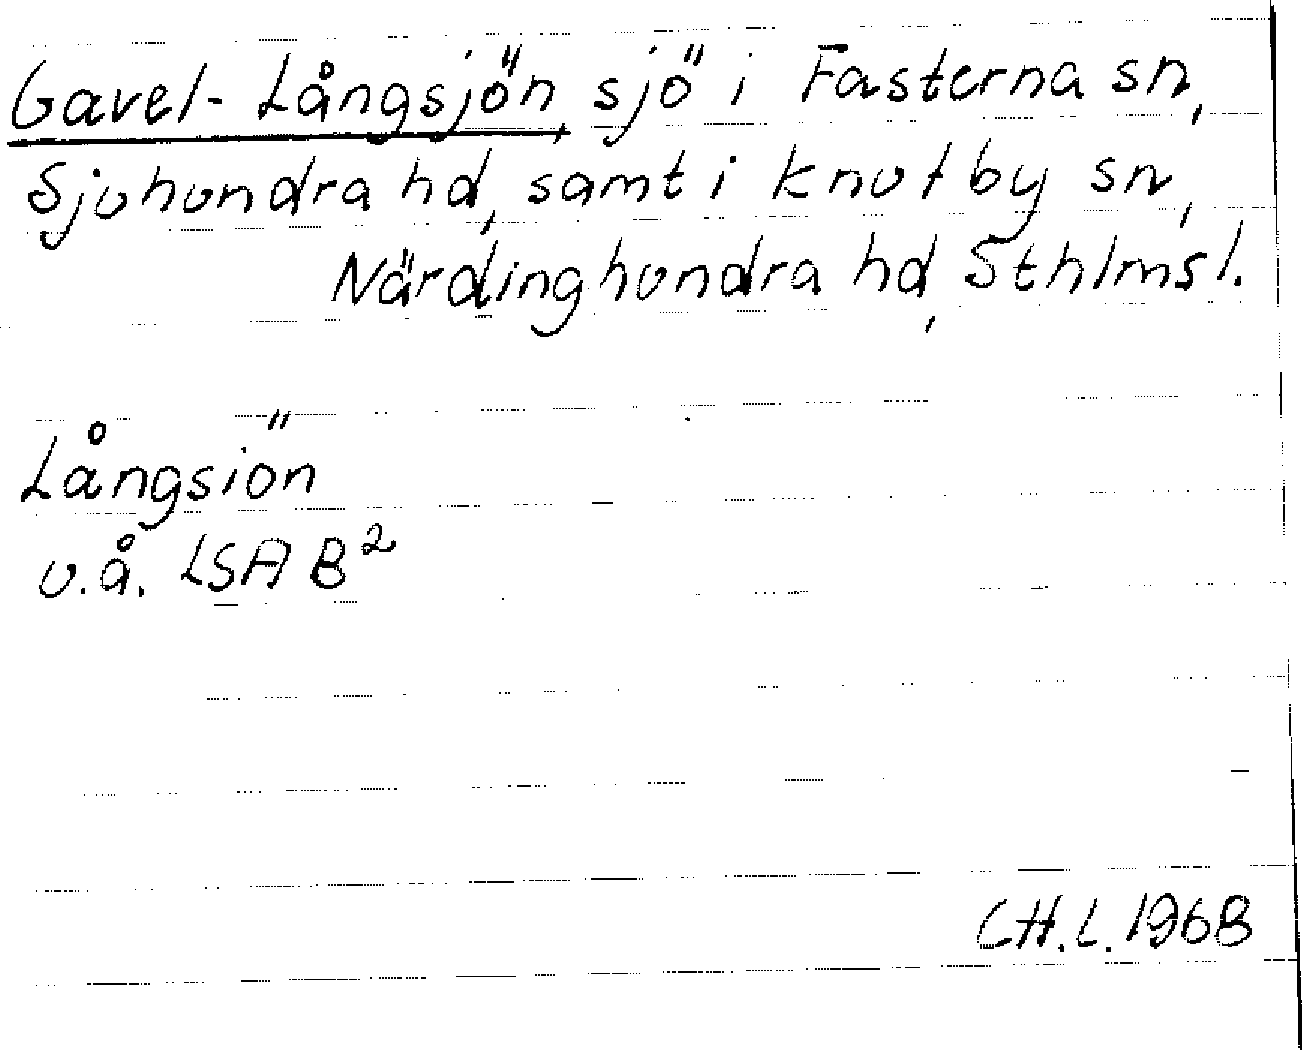 Gavel-Långsjön, sjö i Fasterna sn,
Sjuhundra hd, samt i Knutby sn,
Närdinghundra hd, Sthlms l.
Långsiön
u.å. LSA B²
CH.L. 1968